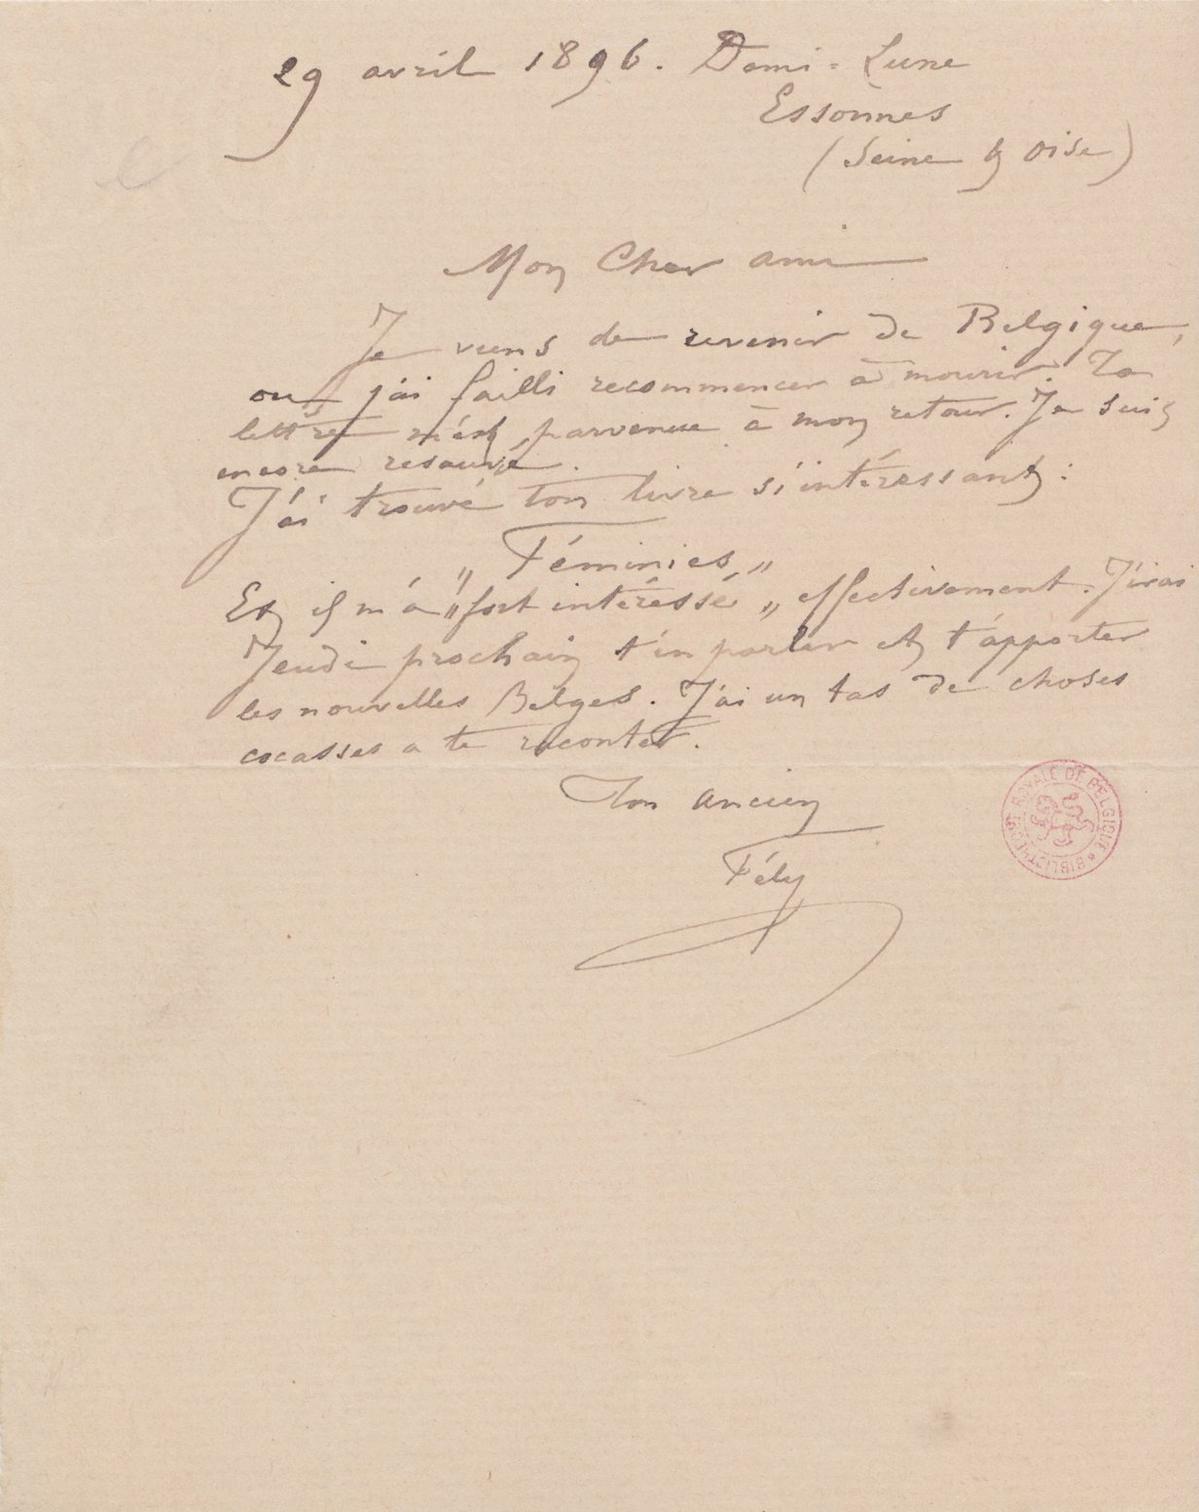 29 avril 1896. Demi-Lune
Essonnes
(Seine & Oise)
Mon Cher ami
Je viens de revenir de Belgique,
ou j'ai failli recommencer à mourir. Ta
lettre m'est parvenue à mon retour. Je suis
encore resauvé.
J'ai trouvé ton livre si intéressant :
„ Féminies „
Et il m'a „ fort intéressé „ effectivement. J'irai
Jeudi prochain t'en parler et t'apporter
les nouvelles Belges. J'ai un tas de choses
cocasses a te raconter.
Ton ancien
Fély
BIBLIOTHÈQUE ROYALE DE BELGIQUE